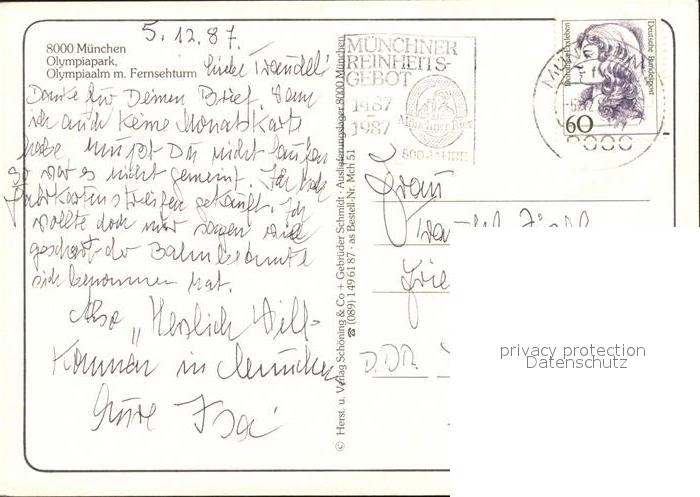 5.12.87.
8000 München
Olympiapark,
Olympiaalm m. Fernsehturm
Liebe Traudel!
Danke für Deinen Brief. Wenn
ich auch keine Monatskarte
habe, mußt Du nicht laufen
So war es nicht gemeint. Ich hab
Fahrkartenstreifen gekauft. Ich
wollte doch nur sagen wie
geschert der Bahnbeamte
sich benommen hat.
Also „Herzlich Will-
kommen in München
Eure Isa
© Herst. u. Verlag Schöning & Co + Gebrüder Schmidt · Auslieferungslager 8000 München
☎ (089) 1 49 61 87 · as Bestell-Nr. Mch 51
MÜNCHNER
REINHEITS-
GEBOT
1487
-
1987
Münchner Bier
500 JAHRE
Deutsche Bundespost
60
Frau
D.DR
privacy protection
Datenschutz